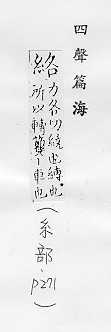 四聲篇海
絡力各切繞也縛也
所以轉籰絡車也
(糸部、P271)